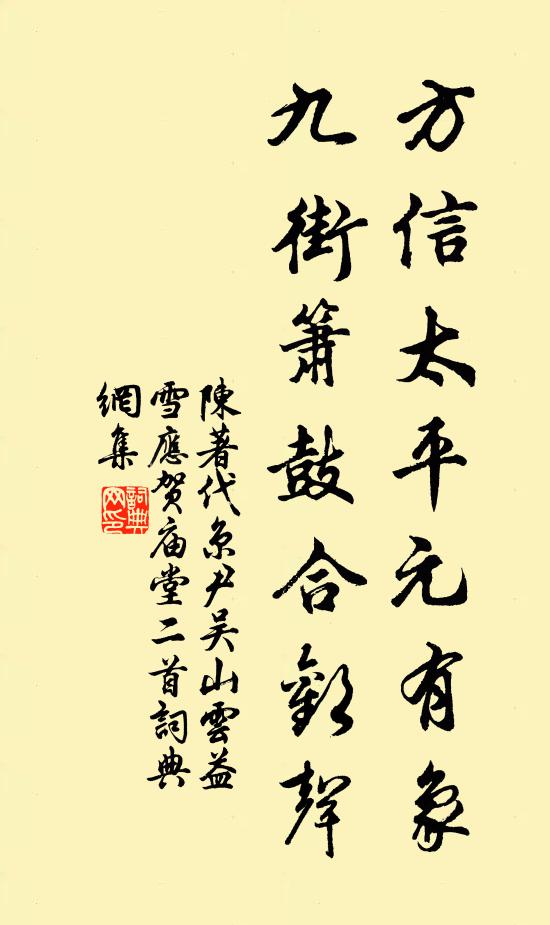 方信太平元有象
九街簫鼓合歡聲
陳著代京尹吴山雲益
雪應贺庙堂二首詞典
網集
詞典
网印